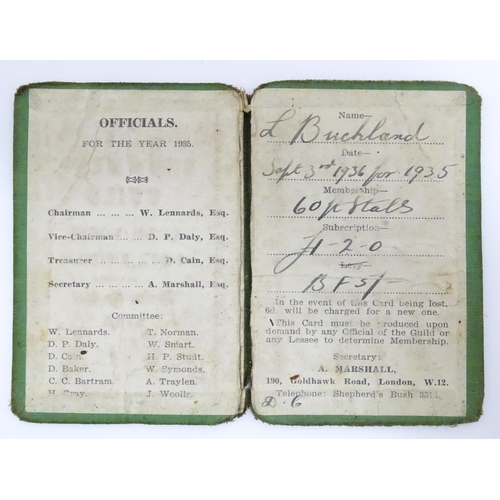 OFFICIALS.
FOR THE YEAR 1935.
Chairman ... ... ... W. Lennards, Esq.
Vice-Chairman ... ... D. P. Daly, Esq.
Treasurer ... ... ... D. Cain, Esq.
Secretary ... ... ... A. Marshall, Esq.
Committee:
W. Lennards. T. Norman.
D. P. Daly. W. Smart.
D. Cain. H. P. Studt.
D. Baker. W. Symonds.
C. C. Bartram. A. Traylen.
H. Gray. J. Woolls.
Name—
L Buckland
Date—
Sept 3rd 1936 for 1935
Membership—
60 p Stalls
Subscription—
£1-2-0
Levy
B F 5/-
In the event of this Card being lost,
6d. will be charged for a new one.
This Card must be produced upon
demand by any Official of the Guild or
any Lessee to determine Membership.
Secretary:
A. MARSHALL,
190, Goldhawk Road, London, W.12.
Telephone: Shepherd's Bush